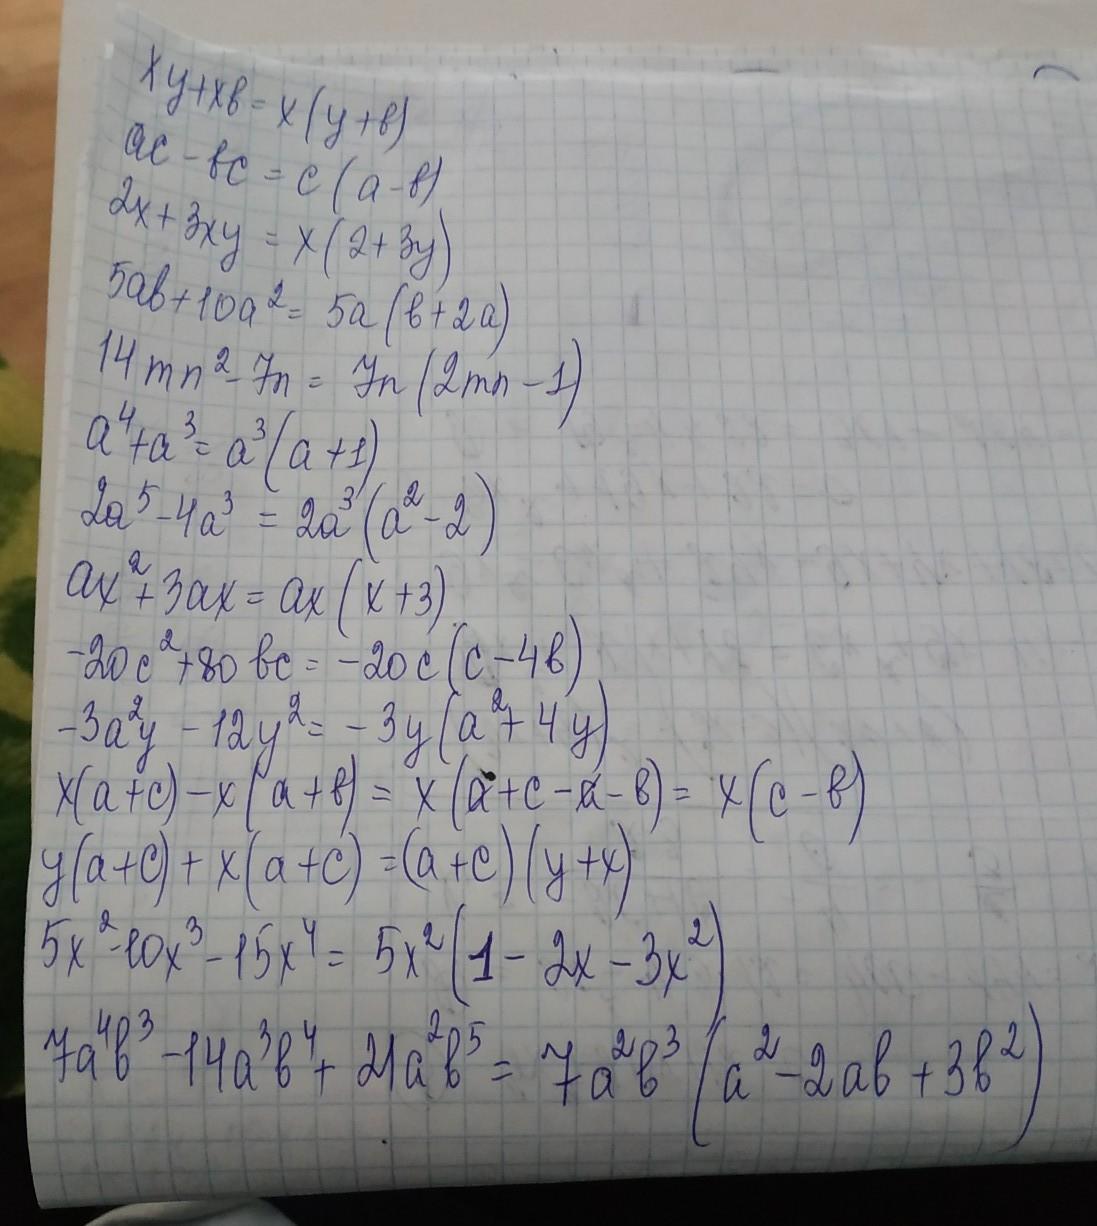 xy+xв=x(y+в)
ac-вc=c(a-в)
2x+3xy=x(2+3y)
5aв+10a²=5a(в+2a)
14mn²-7n=7n(2mn-1)
a⁴+a³=a³(a+1)
2a⁵-4a³=2a³(a²-2)
ax²+3ax=ax(x+3)
-20c²+80вc=-20c(c-4в)
-3a²y-12y²=-3y(a²+4y)
x(a+c)-x(a+в)=x(a+c-a-в)=x(c-в)
y(a+c)+x(a+c)=(a+c)(y+x)
5x²-10x³-15x⁴=5x²(1-2x-3x²)
7a⁴b³-14a³b⁴+21a²b⁵=7a²b³(a²-2ab+3b²)